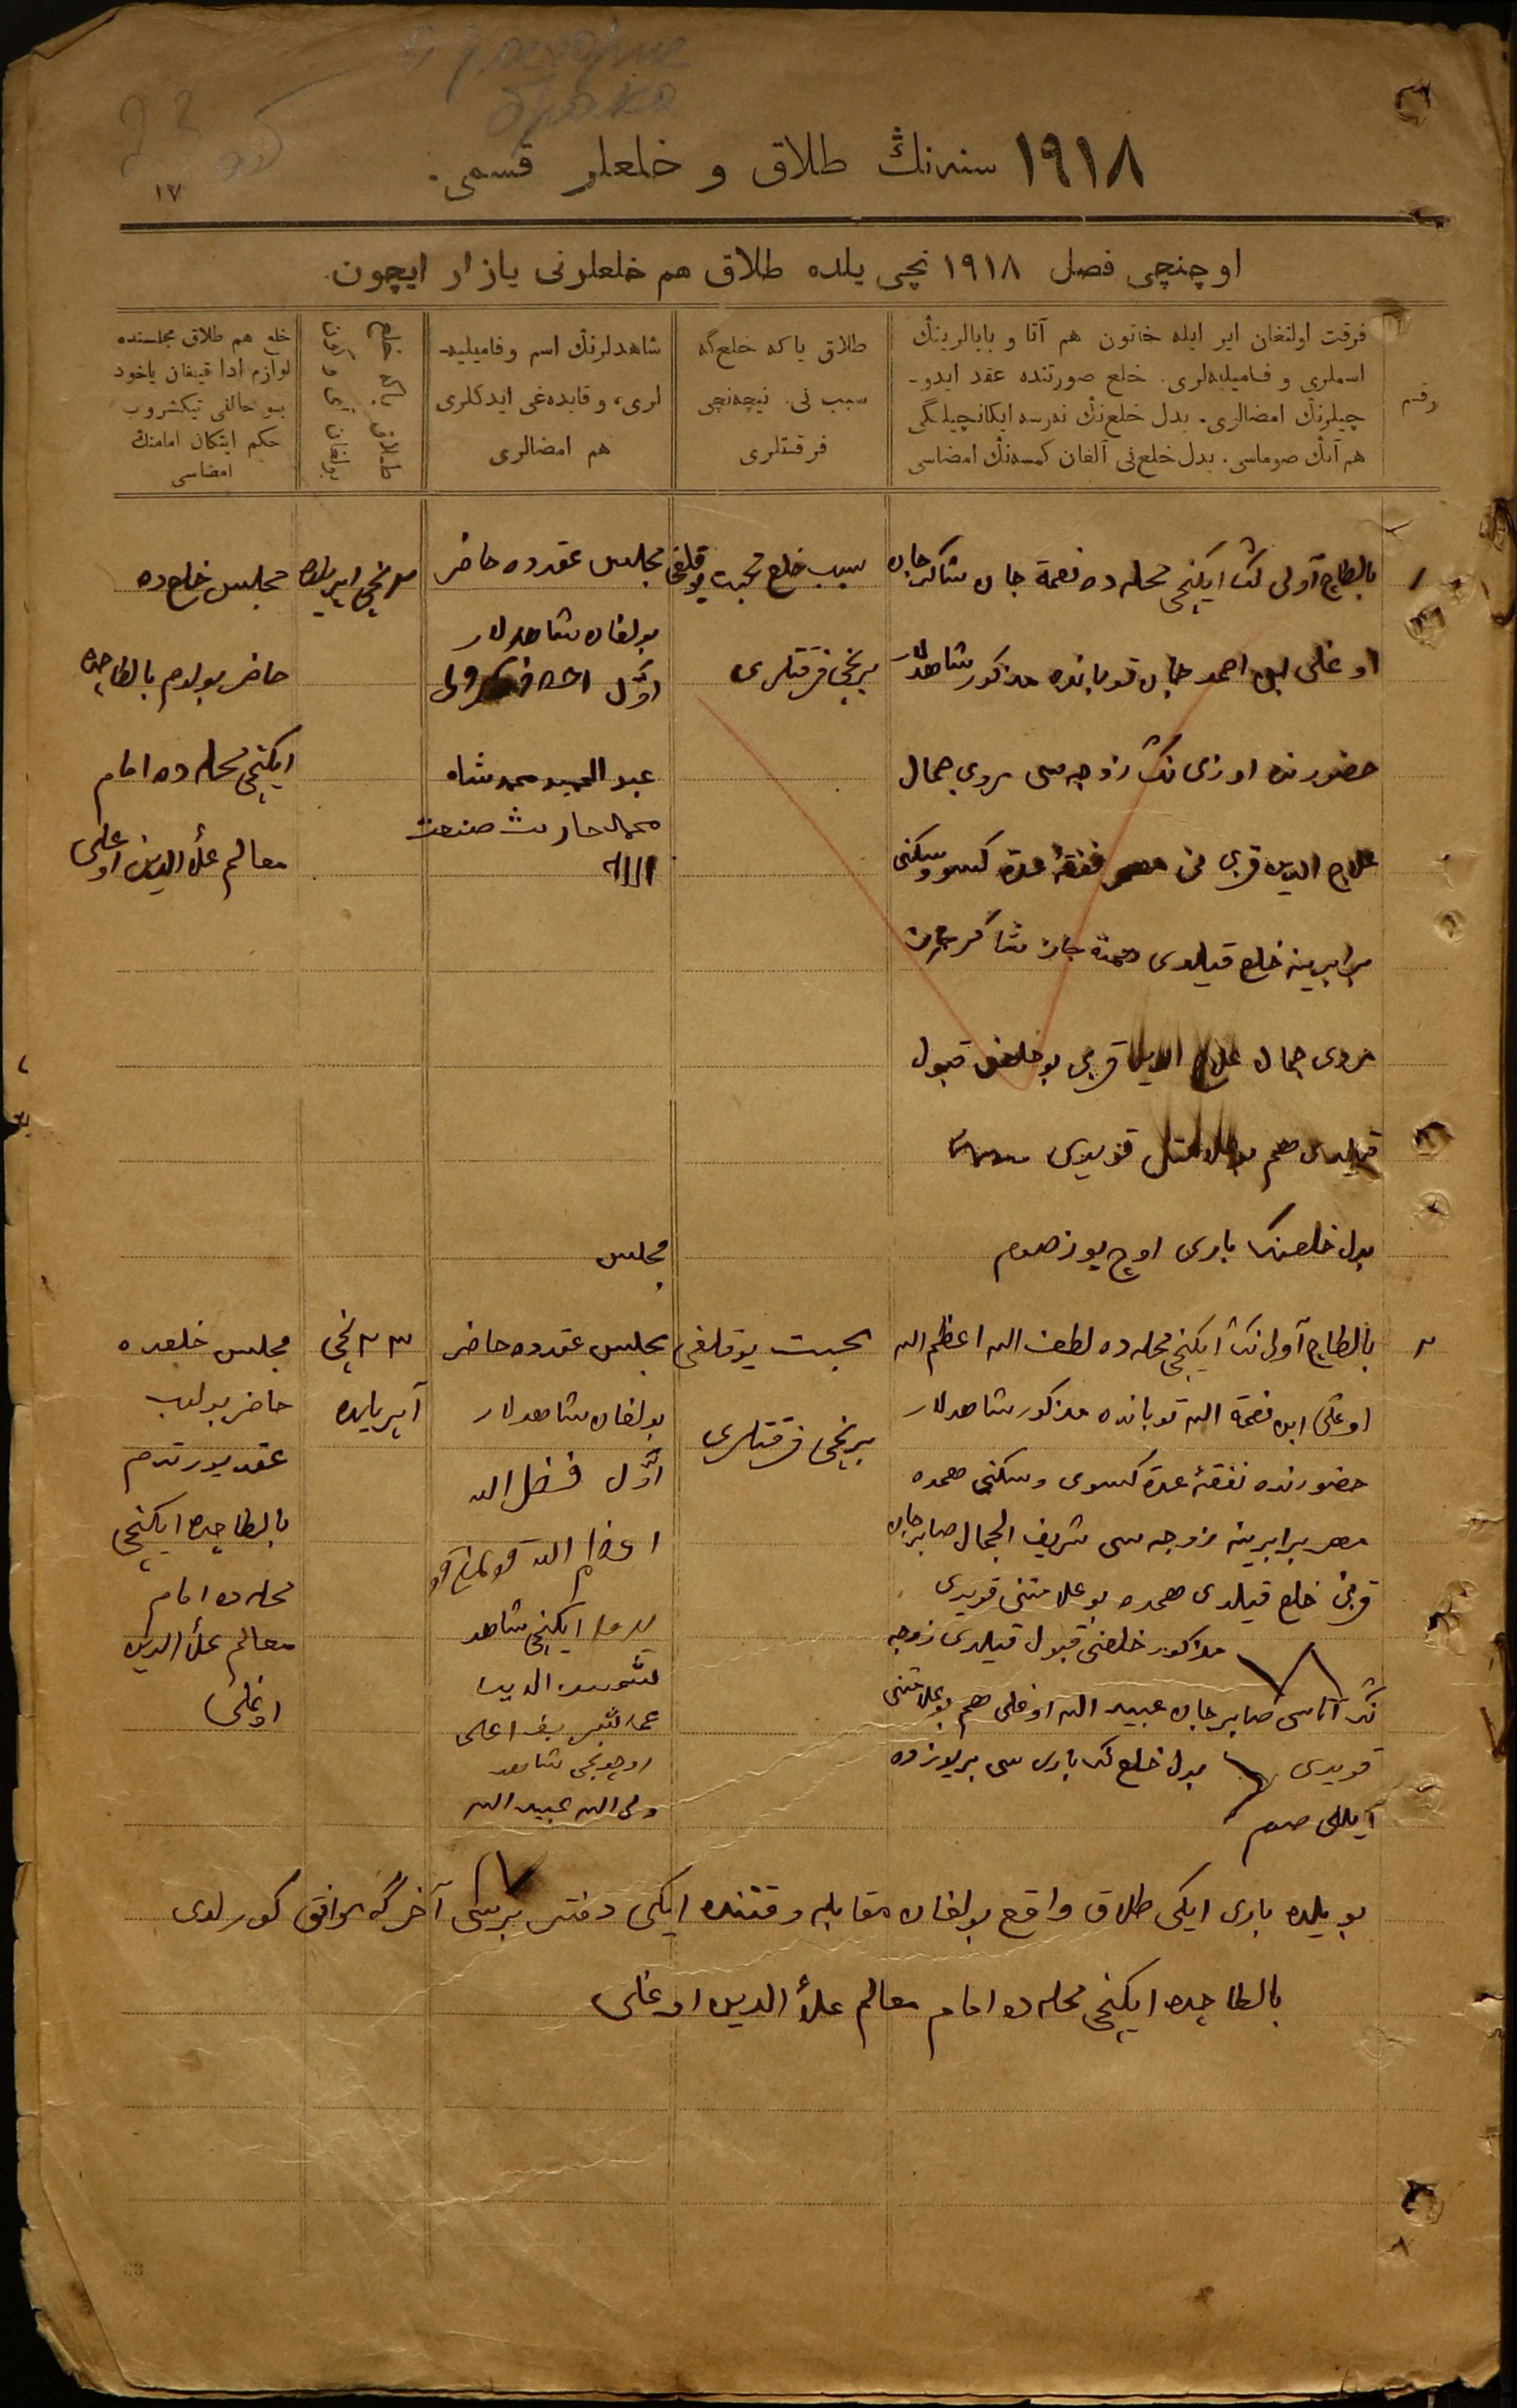 о разводе
брака
١٩١٨ سنه‌نڭ طلاق و خلعلر قسمی.
١٧
اوچنچی فصل ١٩١٨ نچی یلده طلاق هم خلعلرنی یازار ایچون.
رقم
فرقت اولنغان ایر ایله خاتون هم آتا و بابالرینڭ
اسملری و فامیلیه‌لری. خلع صورتنده عقد ایدو-
چیلرنڭ امضالری. بدل خلع‌نڭ نه‌رسه ایکانچیلگی
هم آنڭ صوماسی. بدل خلع‌نی آلغان کمسه‌نڭ امضاسی
طلاق یا که خلع‌گه
سبب نی. نیچه‌نچی
فرقتلری
شاهدلرنڭ اسم و فامیلیه-
لری، و قایده‌غی ایدکلری
هم امضالری
طلاق یا که خلع
بولغان آی و کون
خلع هم طلاق مجلسنده
لوازم ادا قیلغان یاخود
بو حالنی تیکشروب
حکم ایتکان امامنڭ
امضاسی
١
بالطاچ آولی نڭ ایکنچی محله ده نعمة جان شاکرجان
اوغلی ابن احمد جان توبانده مذکور شاهدلار
حضورنده اوزی نڭ زوجه سی سروی جمال
علاج الدین قزی نی مهر نفقۀ عدة کسوه و سکنی
برابرینه خلع قیلدی نعمة جان شاکرجان
سروی جمال علاج الدین قزی بو خلعنی قبول
قیلدی هم قویدی
بدل خلعنڭ باری اوچ یوز صوم
سبب خلع محبت یوقلغی
برنچی فرقتلری
مجلس عقدده حاضر
بولغان شاهدلار
اوّل
عبد الحمید محمدشاه
محمد حارث
مجلس
نچی اپریلده
مجلس خلع ده
حاضر بولدم بالطاچده
ایکنچی محله ده امام
معالم علاء الدین اوغلی
٢
بالطاچ آولی نڭ ایکنچی محله ده لطف الله اعظم الله
اوغلی ابن نعمة الله توبانده مذکور شاهدلار
حضورنده نفقۀ عدة کسوی و سکنی همده
مهر برابرینه زوجه سی شریف الجمال صابرجان
قزین خلع قیلدی همده بو علامتنی قویدی
مذکور خلعنی قبول قیلدی زوجه
نڭ آتاسی صابرجان عبید الله اوغلی هم بو علامتنی
قویدی بدل خلع نڭ باری سی بر یوز ده
آیللی صوم
محبت یوقلغی
برنچی فرقتلری
مجلس عقدده حاضر
بولغان شاهدلار
اوّل فضل الله
اعظم الله
ایکنچی شاهد
شمس الدین
محمد شریف اوغلی
اوچونچی شاهد
ولی الله عبید الله
٢٣ نچی
آپریلده
مجلس خلعده
حاضر بولب
عقد یورتدم
بالطاچده ایکنچی
محله ده امام
معالم علاء الدین
اوغلی
بو یلده باری ایکی طلاق واقع بولغان مقابله وقتنده ایکی دفتر بریسی آخرگه موافق کورلدی
بالطاچده ایکنچی محله ده امام معالم علاء الدین اوغلی